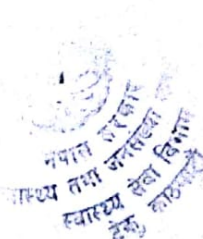 नेपाल सरकार
स्वास्थ्य तथा जनसंख्या
स्वास्थ्य सेवा विभाग
टेकु